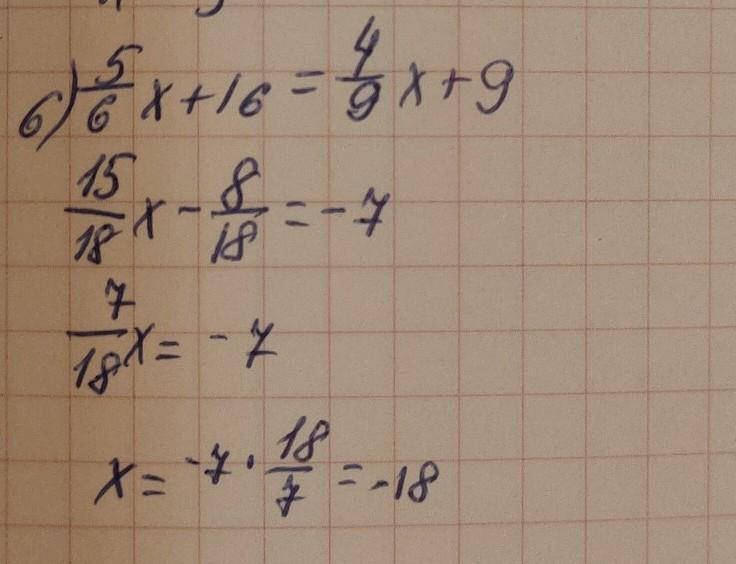 6) 5/6 x + 16 = 4/9 x + 9
15/18 x - 8/18 = -7
7/18 x = -7
x = -7 · 18/7 = -18